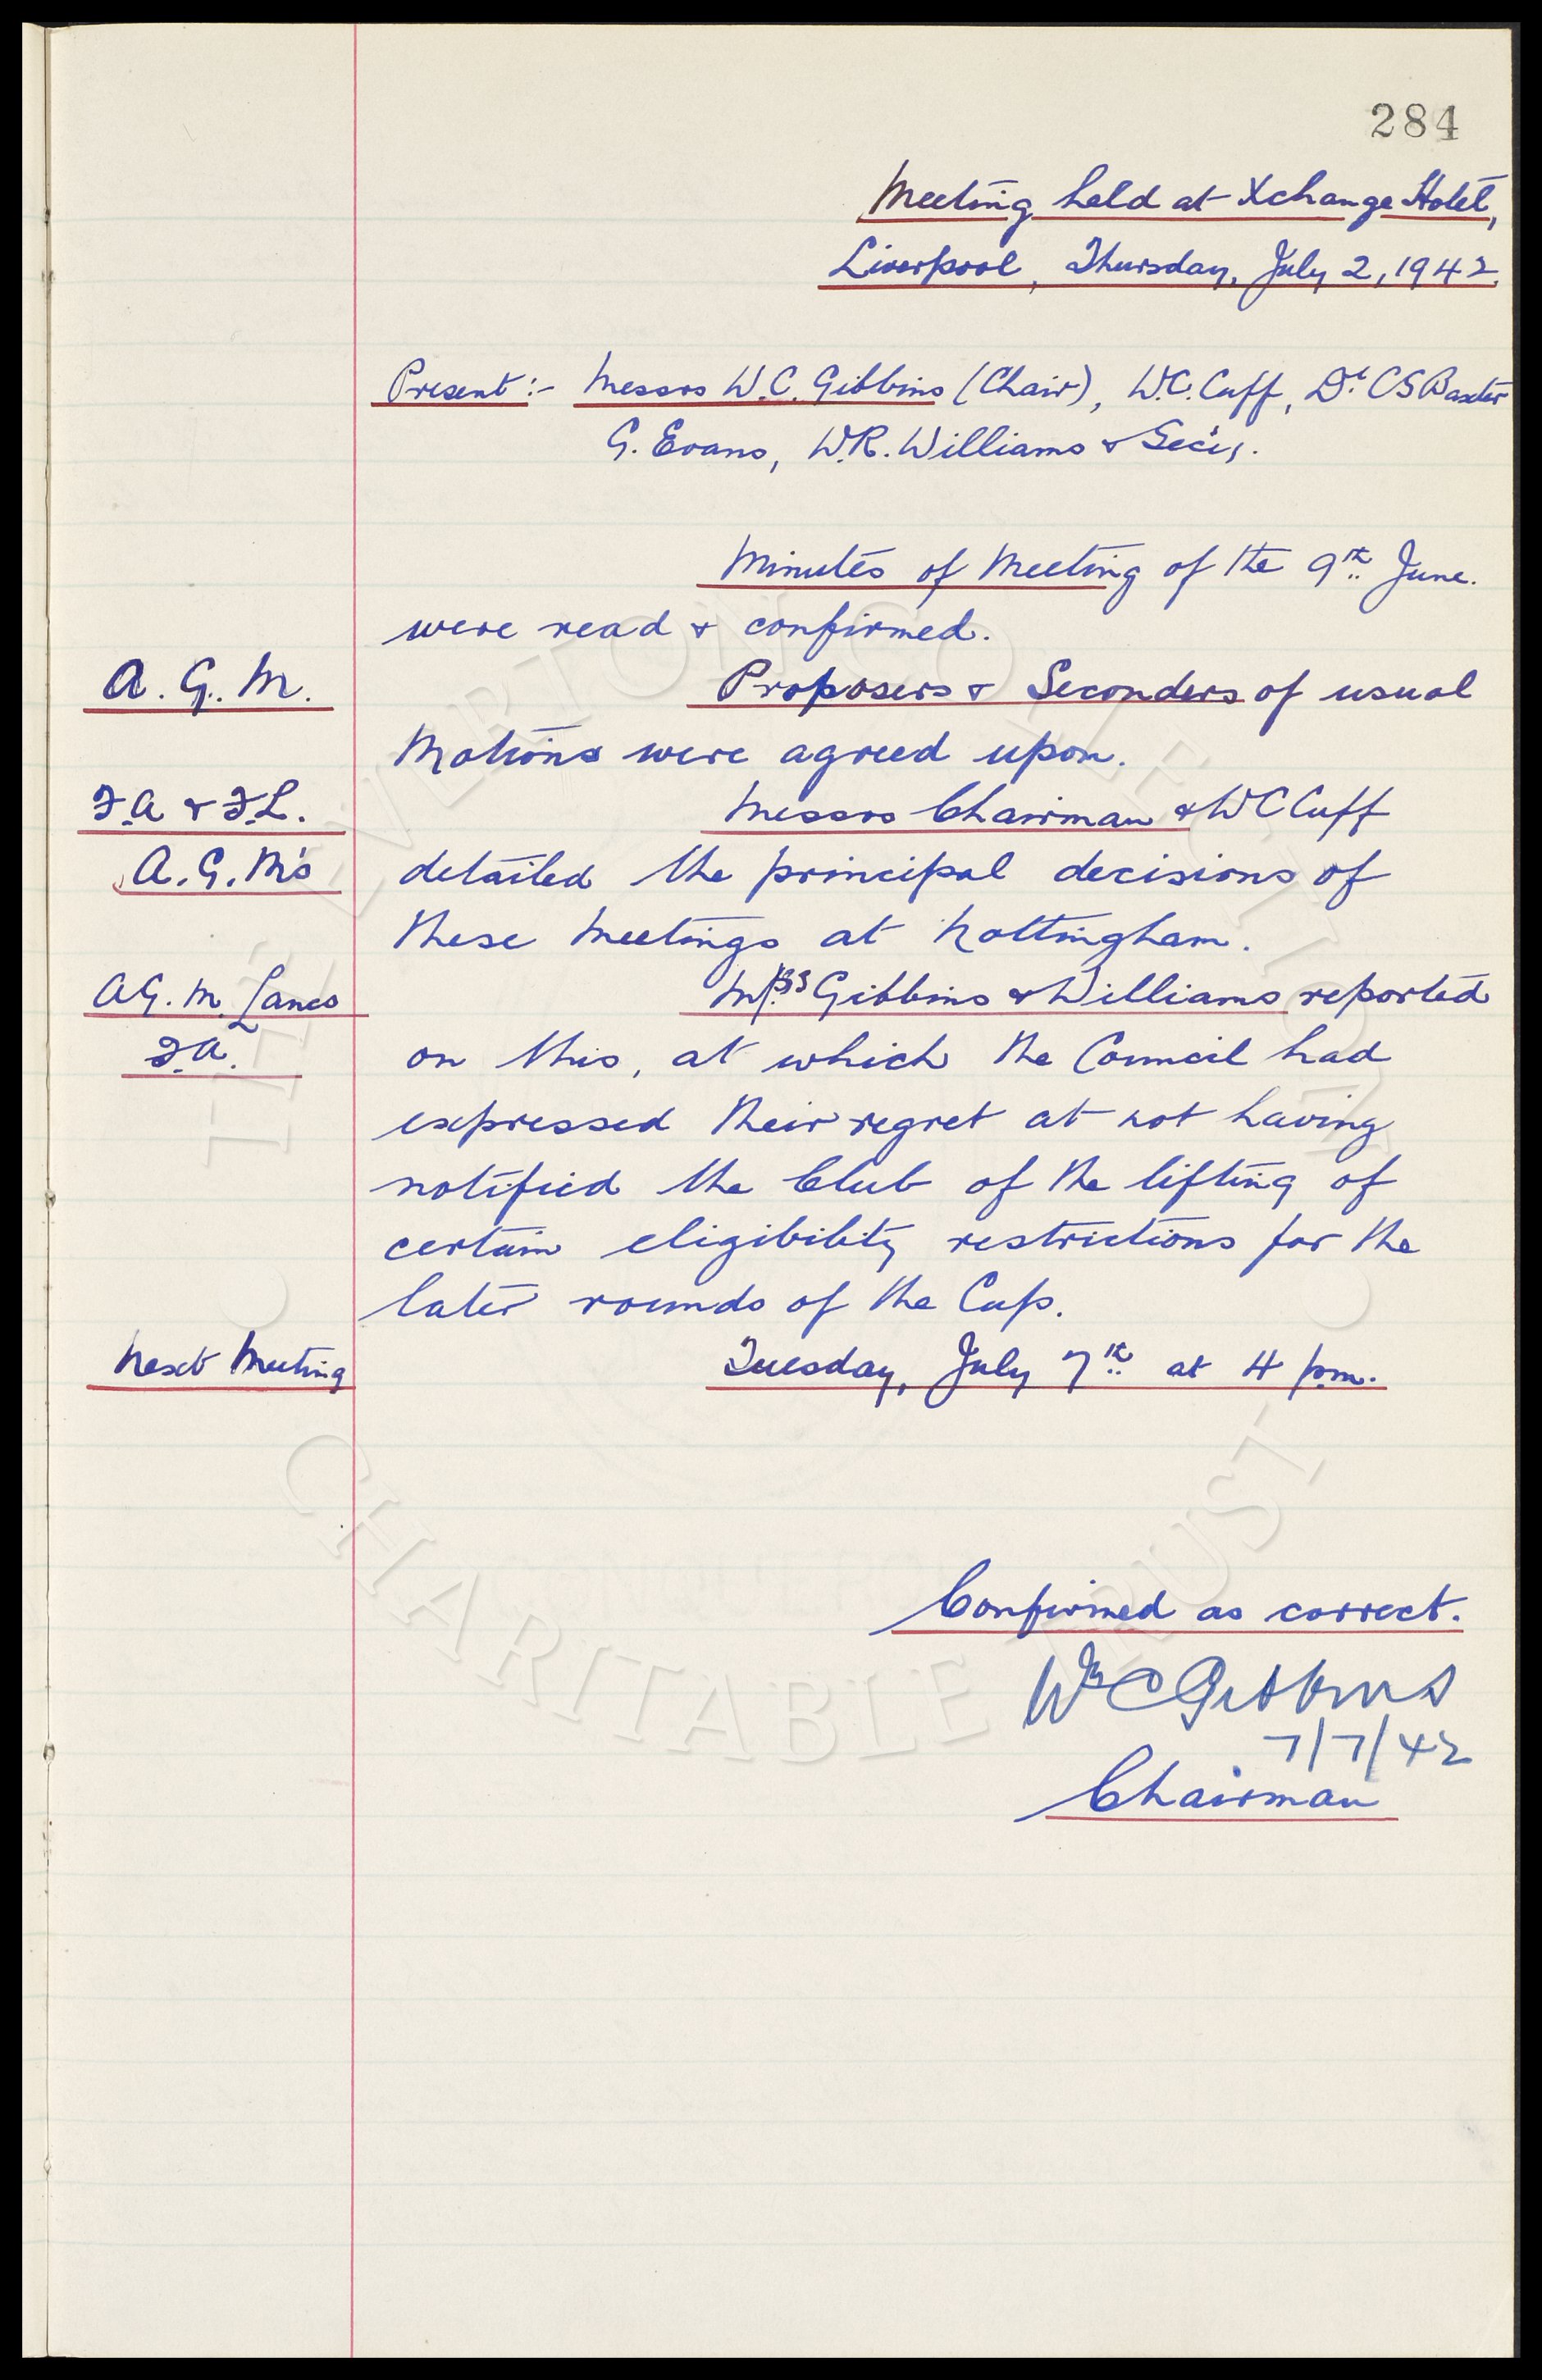 284
Meeting held at Xchange Hotel,
Liverpool, Thursday, July 2, 1942.
Present :- Messrs W.C. Gibbins (Chair), W.C. Cuff, Dr. CS Baxter
G. Evans, W.R. Williams & Sec'y.
Minutes of Meeting of the 9th June.
were read & confirmed.
A. G. M. Proposers & Seconders of usual
Motions were agreed upon.
F.A & F.L. Messrs Chairman & W C Cuff
A. G. M's detailed the principal decisions of
these meetings at Nottingham.
AG. M. Lancs Gibbins & Williams reported
F.A. on this, at which the Council had
expressed their regret at not having
notified the Club of the lifting of
certain eligibility restrictions for the
later rounds of the Cup.
Next Meeting Tuesday, July 7th at 4 p.m.
Confirmed as correct.
Wm C Gibbins
7/7/42
Chairman
THE EVERTON COLLECTION
CHARITABLE TRUST